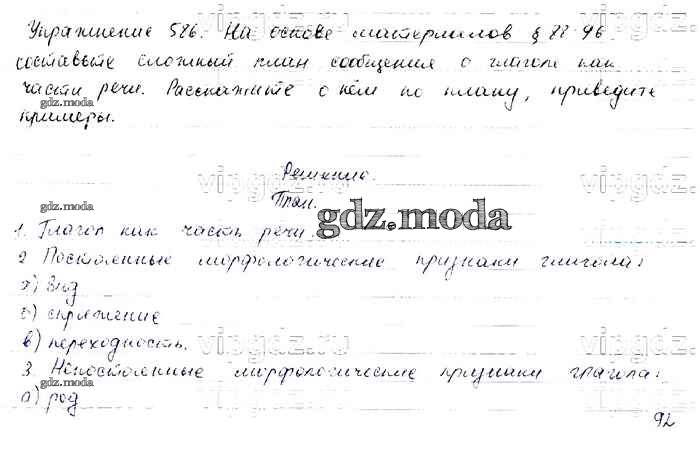 Упражнение 586. На основе материалов § 88-96
составьте сложный план сообщения о глаголе как
части речи. Расскажите о нём по плану, приведите
gdz.moda
примеры.
Решение.
vipgdz.ru
План.
gdz.moda
gdz.moda
1. Глагол как часть речи.
2 Постоянные морфологические признаки глагола:
а) вид
б) спряжение
в) переходность.
vipgdz.ru
3 Непостоянные морфологические признаки глагола:
gdz.moda
а) род
92